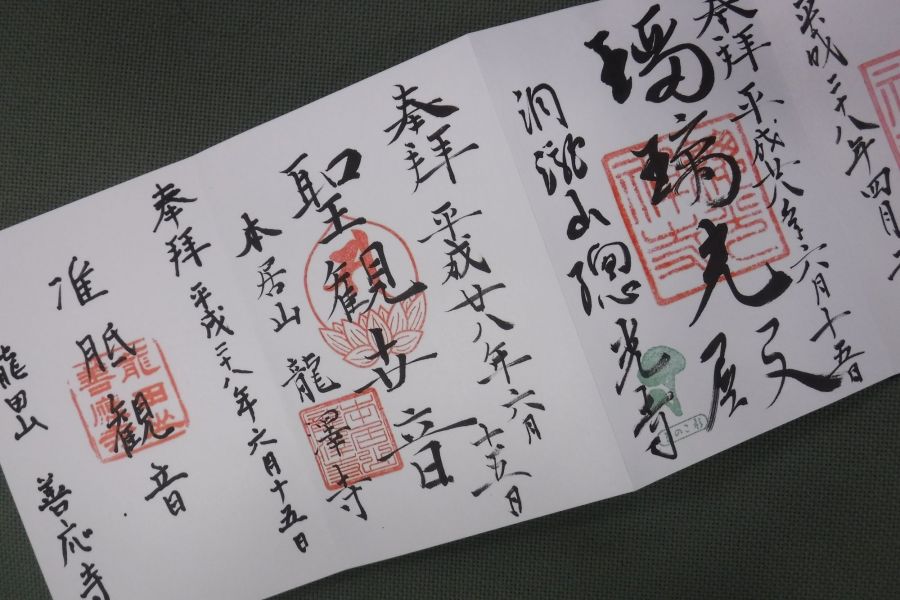 平成二十八年四月
奉拝
平成廿八年六月十五日
瑠璃光殿
洞瀧山
光寺
奉拝
平成廿八年六月十五日
聖観世音
本居山 龍澤寺
奉拝
平成二十八年六月十五日
准胝観音
龍田山 善応寺